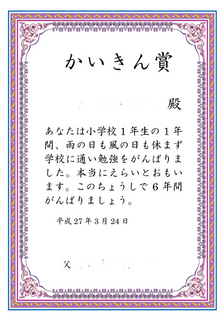 かいきん賞
殿
あなたは小学校1年生の1年
間、雨の日も風の日も休まず
学校に通い勉強をがんばりま
した。本当にえらいとおもい
ます。このちょうしで6年間
がんばりましょう。
平成27年3月24日
父